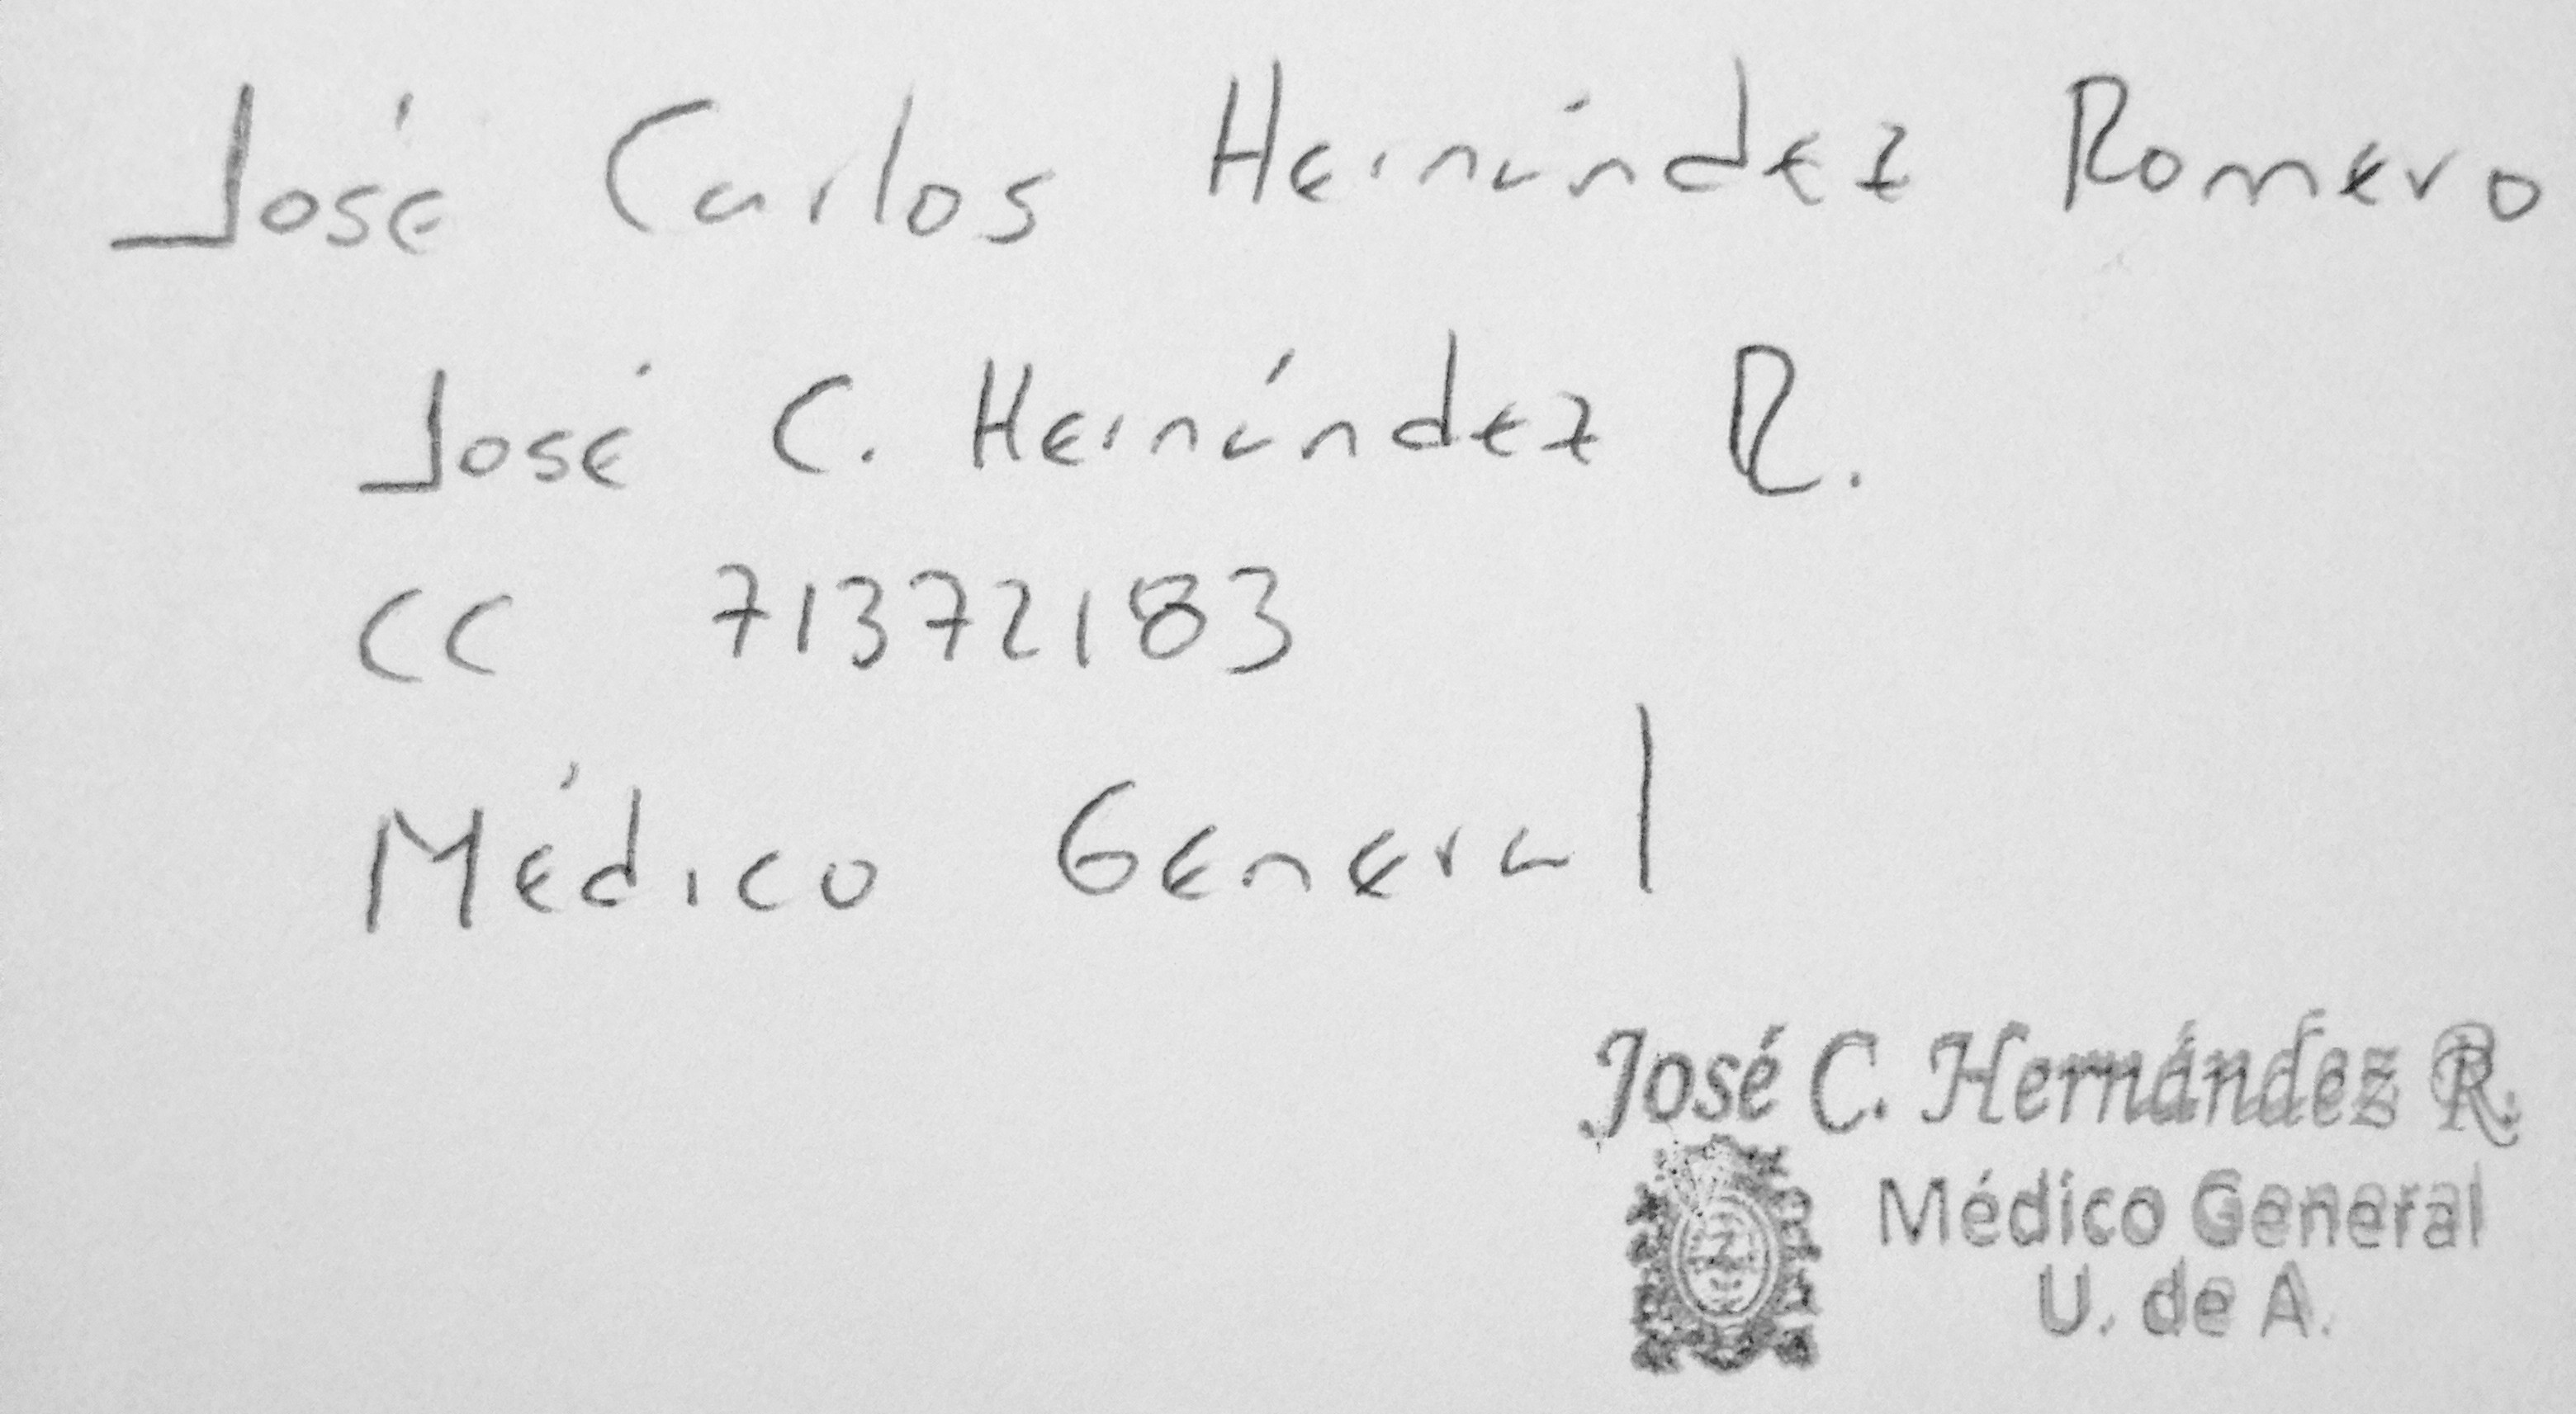 José Carlos Hernández Romero
José C. Hernández R.
CC 71372183
Médico General
José C. Hernández R.
Médico General
U. de A.